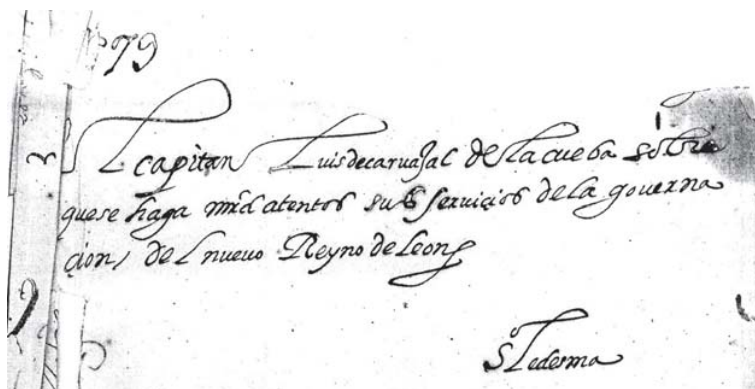 79
El capitan Luis de carvajal de la cueba sobre
que se haga mrd atentos sus serviçios de la governa
çion, del nuevo Reyno de Leon
Sº Ledesma